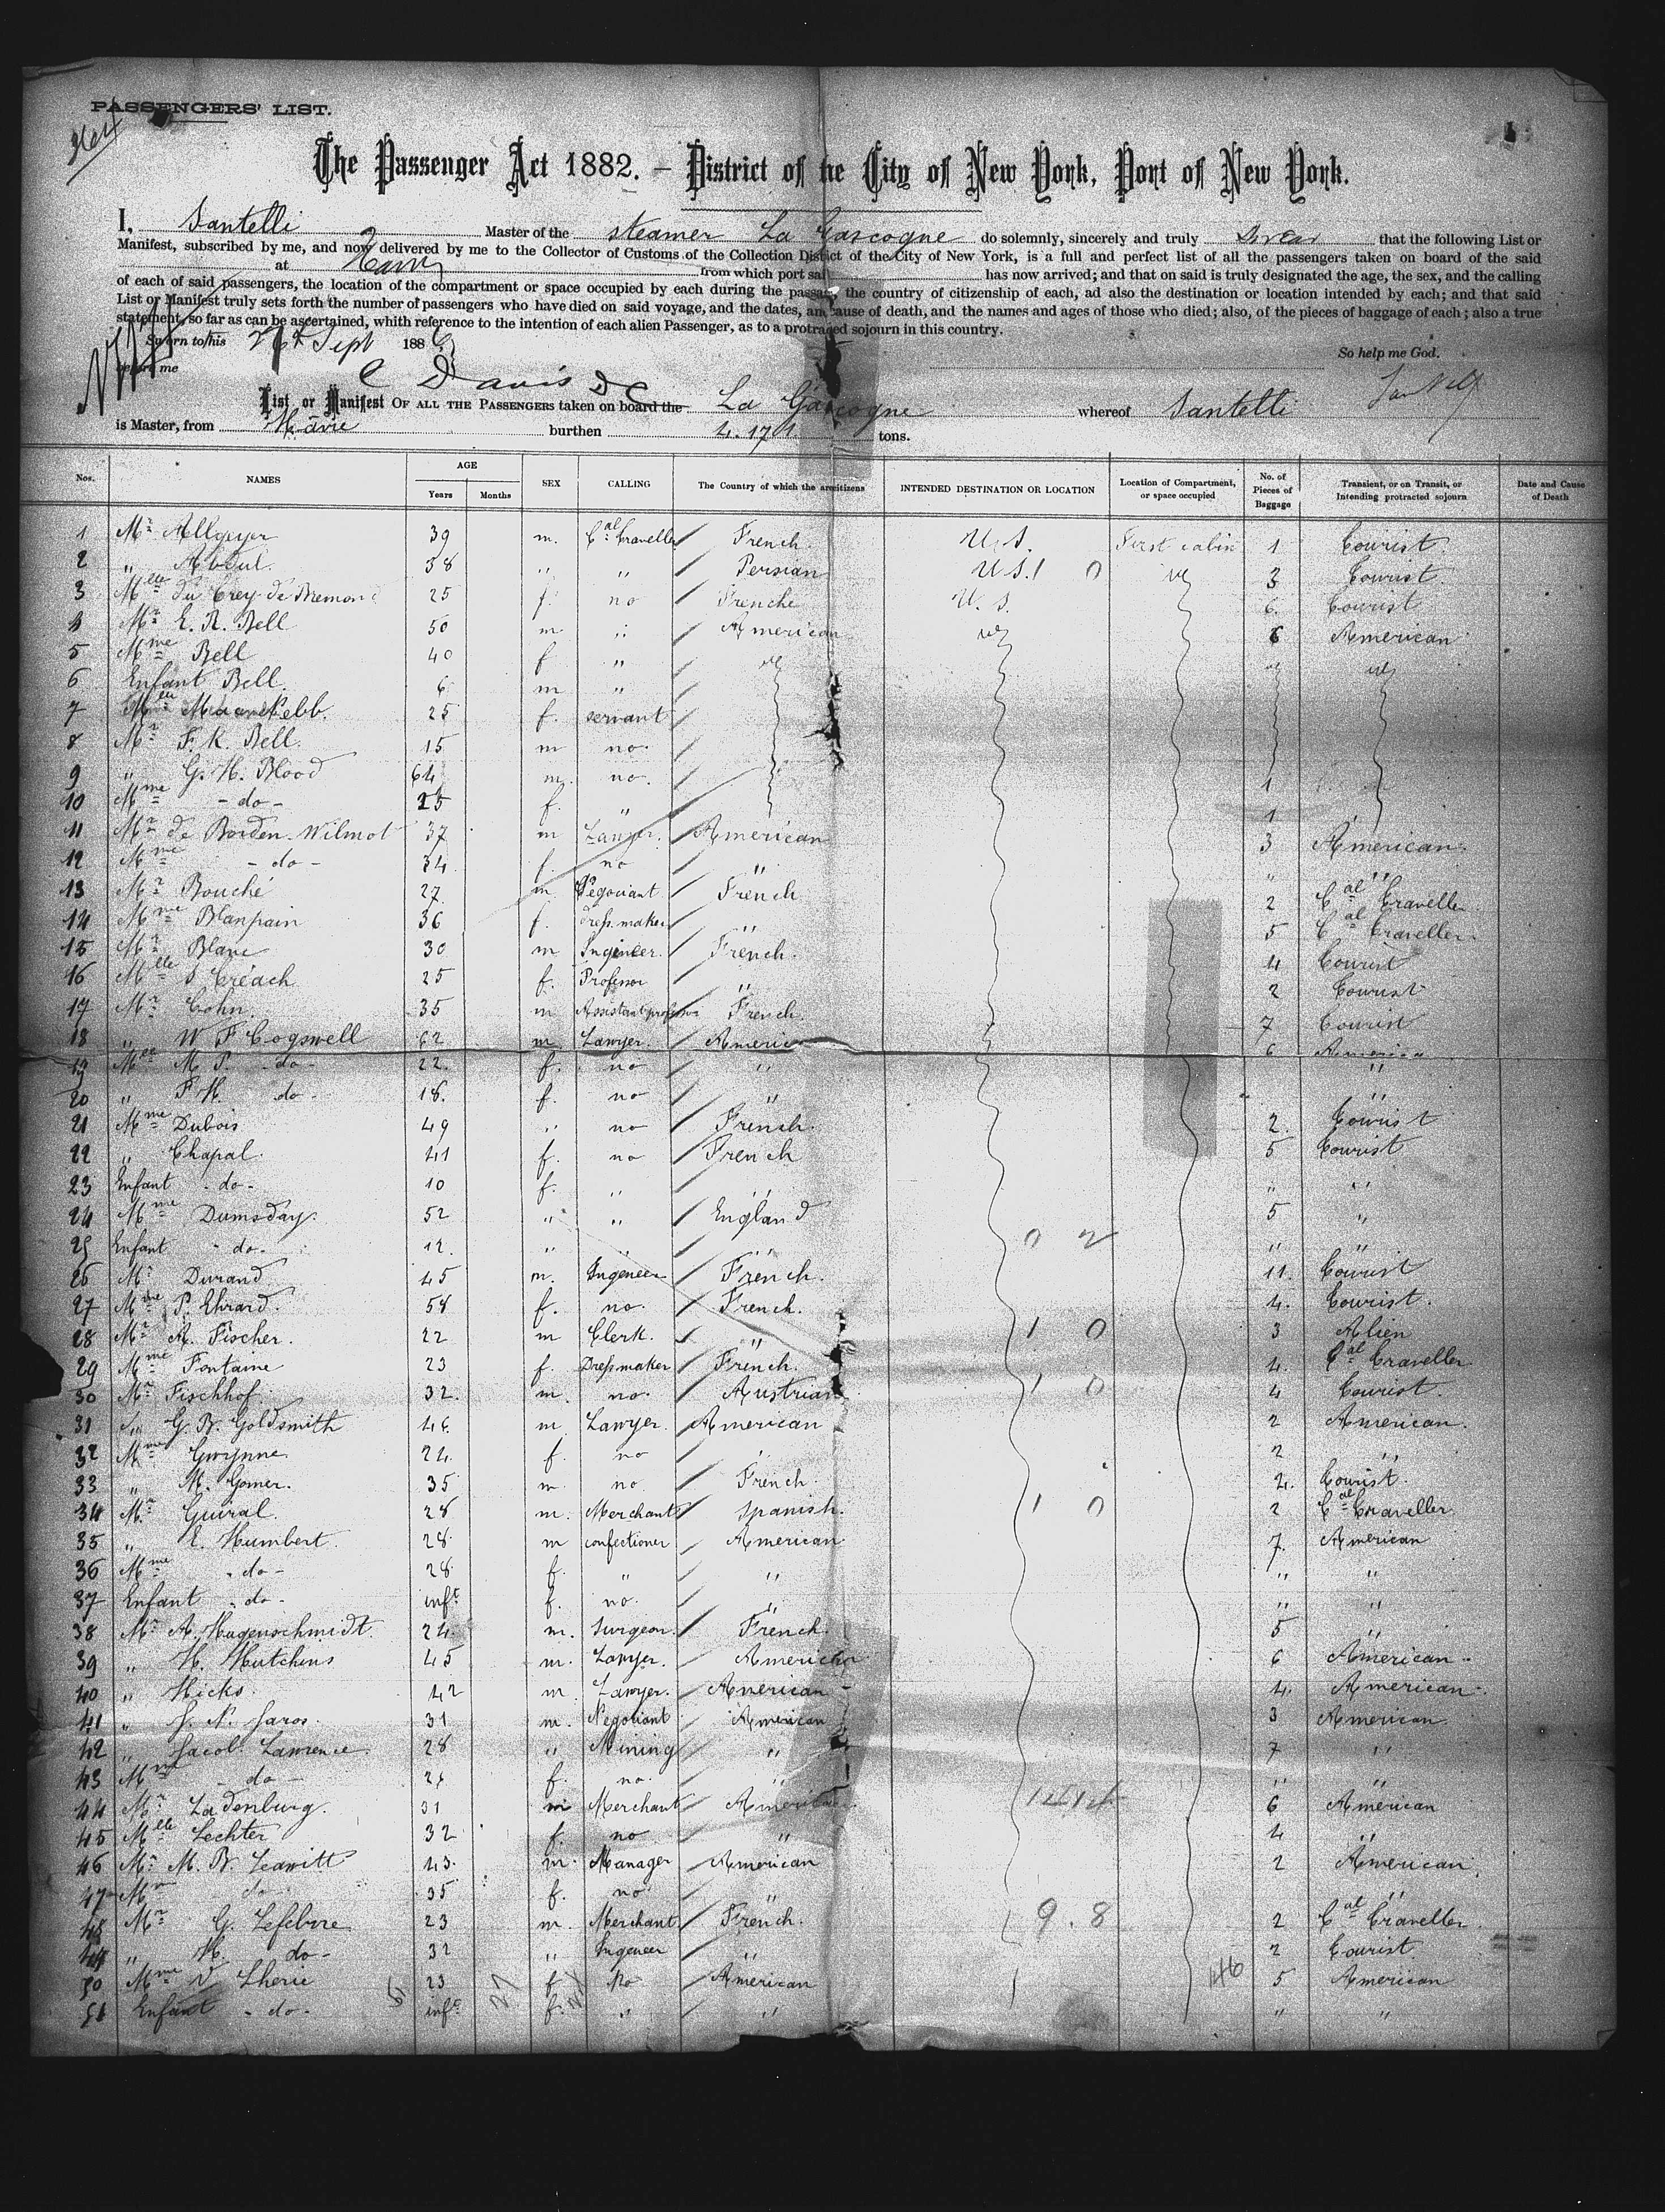 PASSENGERS' LIST.
The Passenger Act 1882. – District of the City of New York, Port of New York.
I, Santelli Master of the steamer La Gascogne do solemnly, sincerely and truly swear that the following List or
Manifest, subscribed by me, and now delivered by me to the Collector of Customs of the Collection District of the City of New York, is a full and perfect list of all the passengers taken on board of the said
at from which port sa has now arrived; and that on said is truly designated the age, the sex, and the calling
of each of said passengers, the location of the compartment or space occupied by each during the passage, the country of citizenship of each, ad also the destination or location intended by each; and that said
List or Manifest truly sets forth the number of passengers who have died on said voyage, and the dates, and cause of death, and the names and ages of those who died; also, of the pieces of baggage of each; also a true
statement, so far as can be ascertained, whith reference to the intention of each alien Passenger, as to a protracted sojourn in this country.
Sworn to this 26 Sept 1886 So help me God.
before me C Davis DC
List or Manifest OF ALL THE PASSENGERS taken on board the La Gascogne whereof Santelli
is Master, from Havre burthen 4.171 tons.
Nos. NAMES AGE Years Months SEX CALLING The Country of which the are citizens INTENDED DESTINATION OR LOCATION Location of Compartment, or space occupied No. of Pieces of Baggage Transient, or on Transit, or Intending protracted sojourn Date and Cause of Death
1 Mr Allgeyer 39 m. Cal Traveller French U.S. First cabin 1 Tourist
2 " Abdul 38 " " Persian U.S. 1 0 3 Tourist
3 Melle du Crey de Bremond 25 f. no Frenche U.S. 6 Tourist
4 Mr E. R. Bell 50 m " American 6 American
5 Mme Bell 40 f "
6 Enfant Bell 6 m "
7 Melle 25 f. servant
8 Mr F. K. Bell 15 m no
9 " G. H. Blood 64 m. no. 1
10 Mme - do - 25 f. " 1
11 Mr de Borden-Wilmot 37 m Lawyer. American 3 American
12 Mme - do - 34 f. no " " "
13 Mr Bouché 27 m Negociant French 2 Cal Traveller
14 Mme Blanpain 36 f. Dressmaker " 5 Cal Traveller
15 Mr Blanc 30 m Ingineer. French. 4 Tourist
16 Melle S Créach 25 f. Professor " 2 Tourist
17 Mr Cohn 35 m Assistant professor French. 7 Tourist
18 " W F Cogswell 62 m. Lawyer. America 6 America
19 Melle M P. - do - 22 f. no " "
20 " P H. do - 18. f. no " "
21 Mme Dubois 49 " no French. 2 Tourist
22 " Chapal 41 f. no French 5 Tourist
23 Enfant - do - 10 f. " " " "
24 Mme Dumsday 52 " " England 5 "
25 Enfant - do - 12. " " " 0 2 " "
26 Mr Durand 45 m. Ingeneer French. 11. Tourist
27 Mme P. Ehrard. 58 f. no. French. 4. Tourist.
28 Mr A. Fischer. 22 m Clerk. " 1 0 3 Alien
29 Mme Fontaine 23 f. Dressmaker French. 4. Cal Traveller
30 Mr Fischhof 32. m no. Austrian 1 0 4 Tourist.
31 " G. B. Goldsmith 46. m Lawyer. American 2 American.
32 Mme Gwynne 24. f. no " 2 "
33 " M. Gomer. 35 m. no French. 4. Tourist.
34 Mr Guiral. 28 m. Merchant Spanish. 1 0 2 Cal Traveller
35 " E. Humbert 28 m confectioner American 7. American
36 Mme - do - 28 f. " " " "
37 Enfant - do - inft f. no. " " "
38 Mr A. Hagenschmidt 24. m. Surgeon. French. 5 "
39 " H. Hutchins 45 m. Lawyer. American 6 American
40 " Hicks 42 m. Lawyer. American 4. American
41 " J. N. Jaros. 31 m. Negotiant American 3 American
42 " Jacob Lawrence 28 " Mining " 7 "
43 Mme - do - f. no. " " "
44 Mr Ladenburg. 31 m Merchant American 6 American
45 Melle Lechter 32 f. no " 4 "
46 Mr M. B. Leavitt 43. m. Manager American 2 American
47 Mme do 35 f. no " "
48 Mr G. Lefebvre 23 m. Merchant. French. 9.8 2 Cal Traveller
49 " H. do - 32 " Ingeneer " 2 Tourist
50 Mme V Lherie 23 f. No American 46 5 American
51 Enfant - do - inft f. " " " "